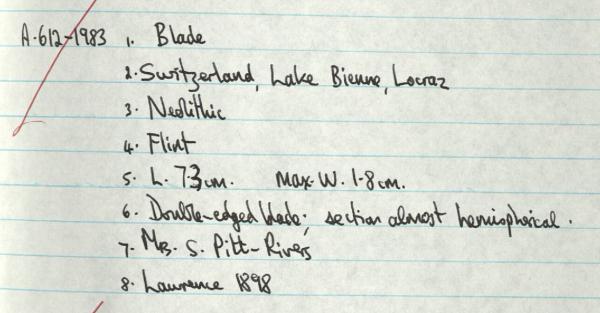 A.612-1983 1. Blade
2. Switzerland, Lake Bienne, Locraz
3. Neolithic
4. Flint
5. L. 7.3 cm. Max. W. 1.8 cm.
6. Double-edged blade; section almost hemispherical.
7. Mrs. S. Pitt-Rivers
8. Lawrence 1898